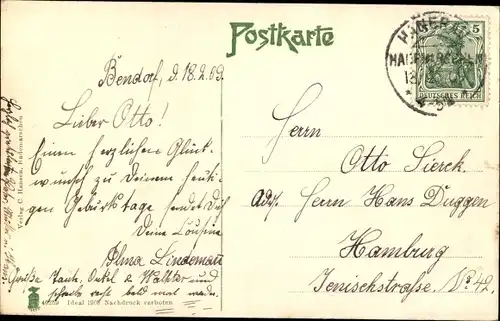 Postkarte
Bendorf, d. 18.2.09.
Lieber Otto!
Einen herzlichen Glück-
wunsch zu Deinem heuti-
gen Gebürtstage sendet Dir
Deine Cousine
Alma Lindemann
Grüße Tante, Onkel & Walther und
schreib recht bald mal wieder.
Verlag C. Hansen, Hademarschen
Ideal 1909 Nachdruck verboten
5
DEUTSCHES REICH
Herrn
Otto Sierck.
Adr. Herrn Hans Duggen
Hamburg
Jenischstraße. No 42.